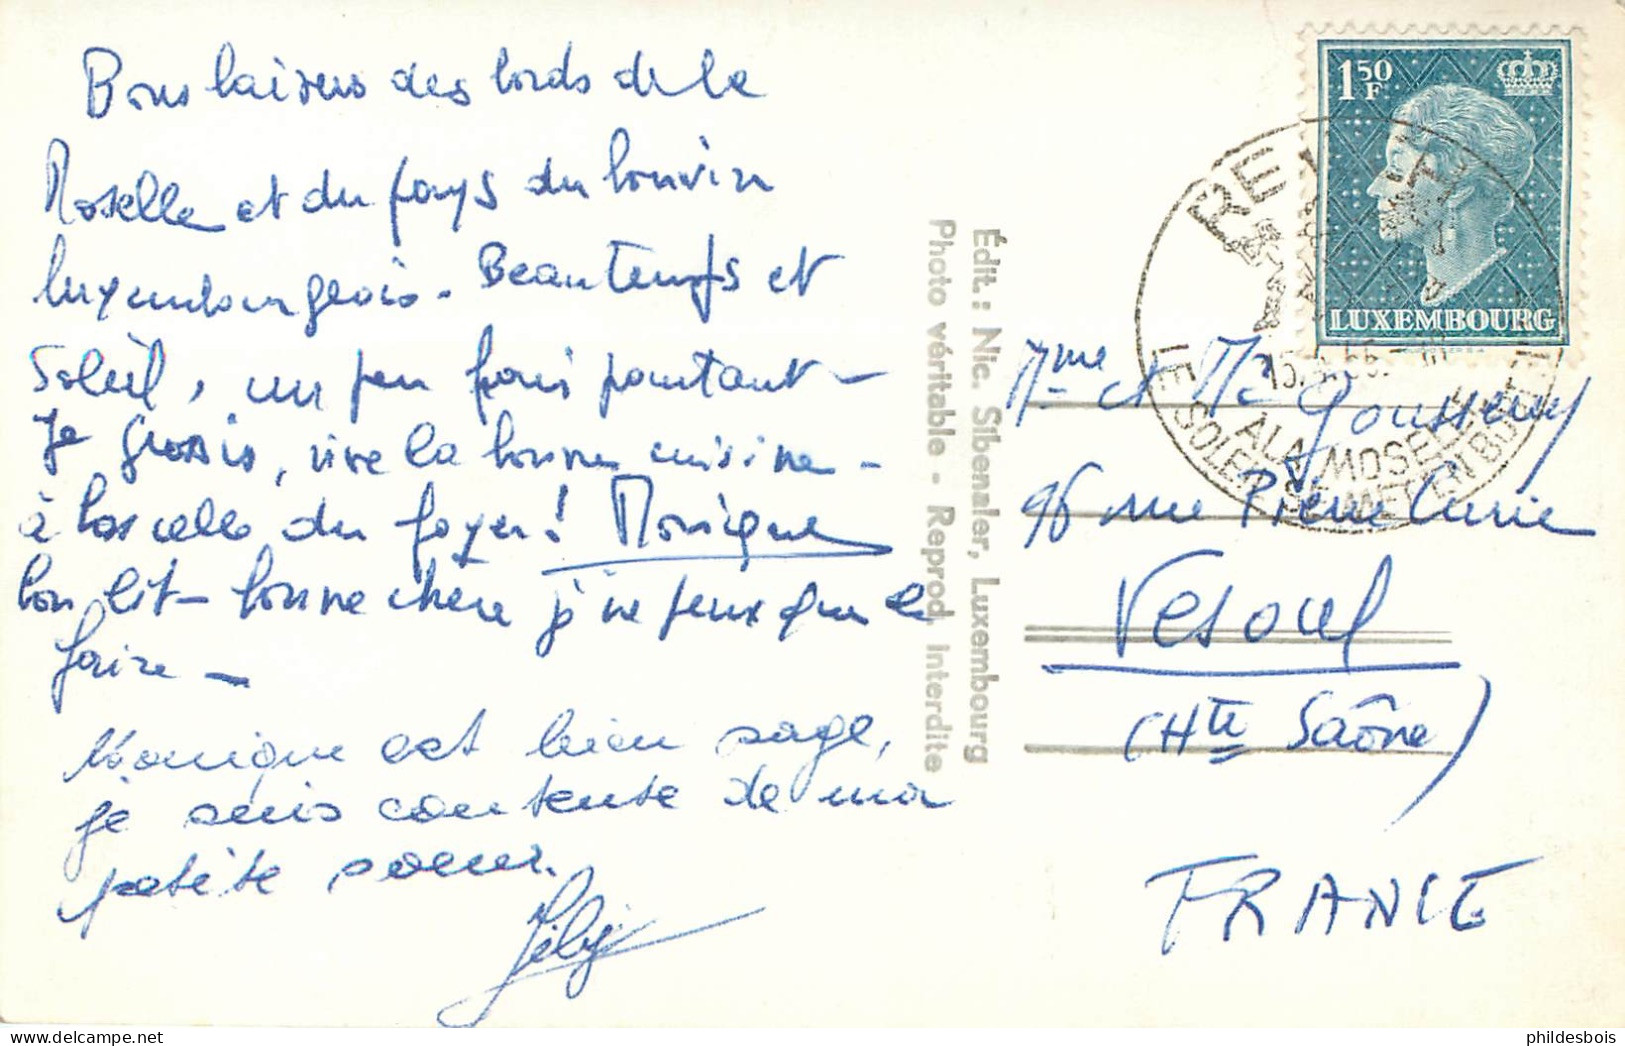 Bons baisers des bords de la
Moselle et du pays du bon vin
luxembourgeois. Beau temps et
Soleil, un peu frais pourtant –
Je grossis, vive la bonne cuisine –
à bas celle du foyer! Monique
bon lit – bonne chère je ne peux que le
faire –
Monique est bien sage,
je suis contente de ma
petite soeur.
Édit.: Nic. Sibenaler, Luxembourg
Photo véritable - Reprod. interdite
1 50 F
LUXEMBOURG
A LA MOSELLE
LE SOLEIL SE MET EN
Mme et Mr
96 rue Pierre Curie
Vesoul
(Hte Saône)
FRANCE
phildesbois